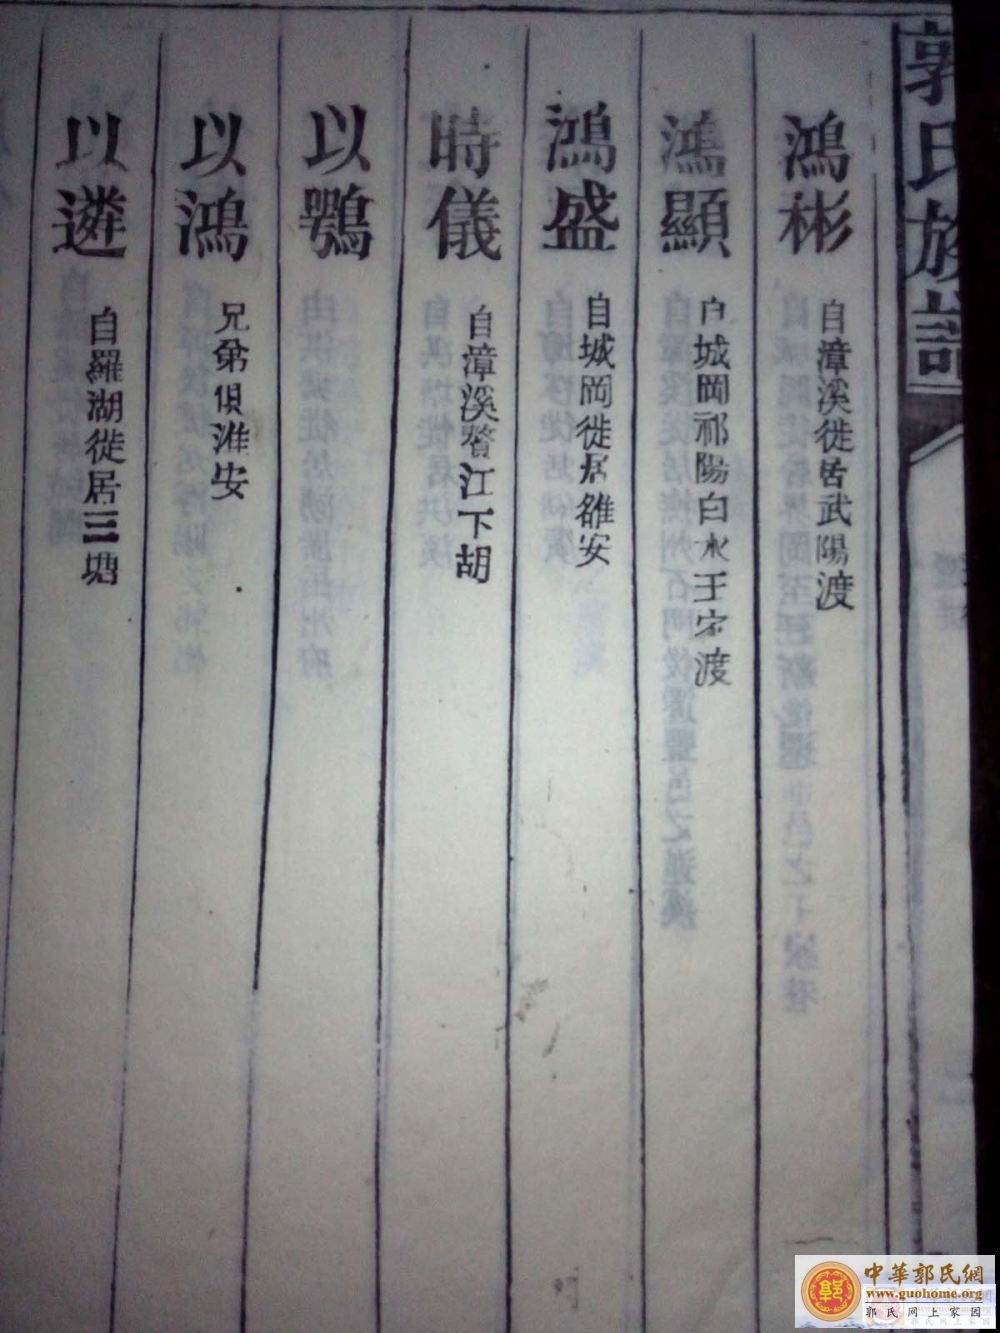 郭氏族譜
鴻彬 自漳溪徙居武陽渡
鴻顯 自城岡祁陽白水王家渡
鴻盛 自城岡徙居雒安
時儀 自漳溪贅江下胡
以鶚
以鴻 兄弟俱淮安
以遴 自羅湖徙居三塘
中華郭氏網
www.guohome.org
郭氏网上家园